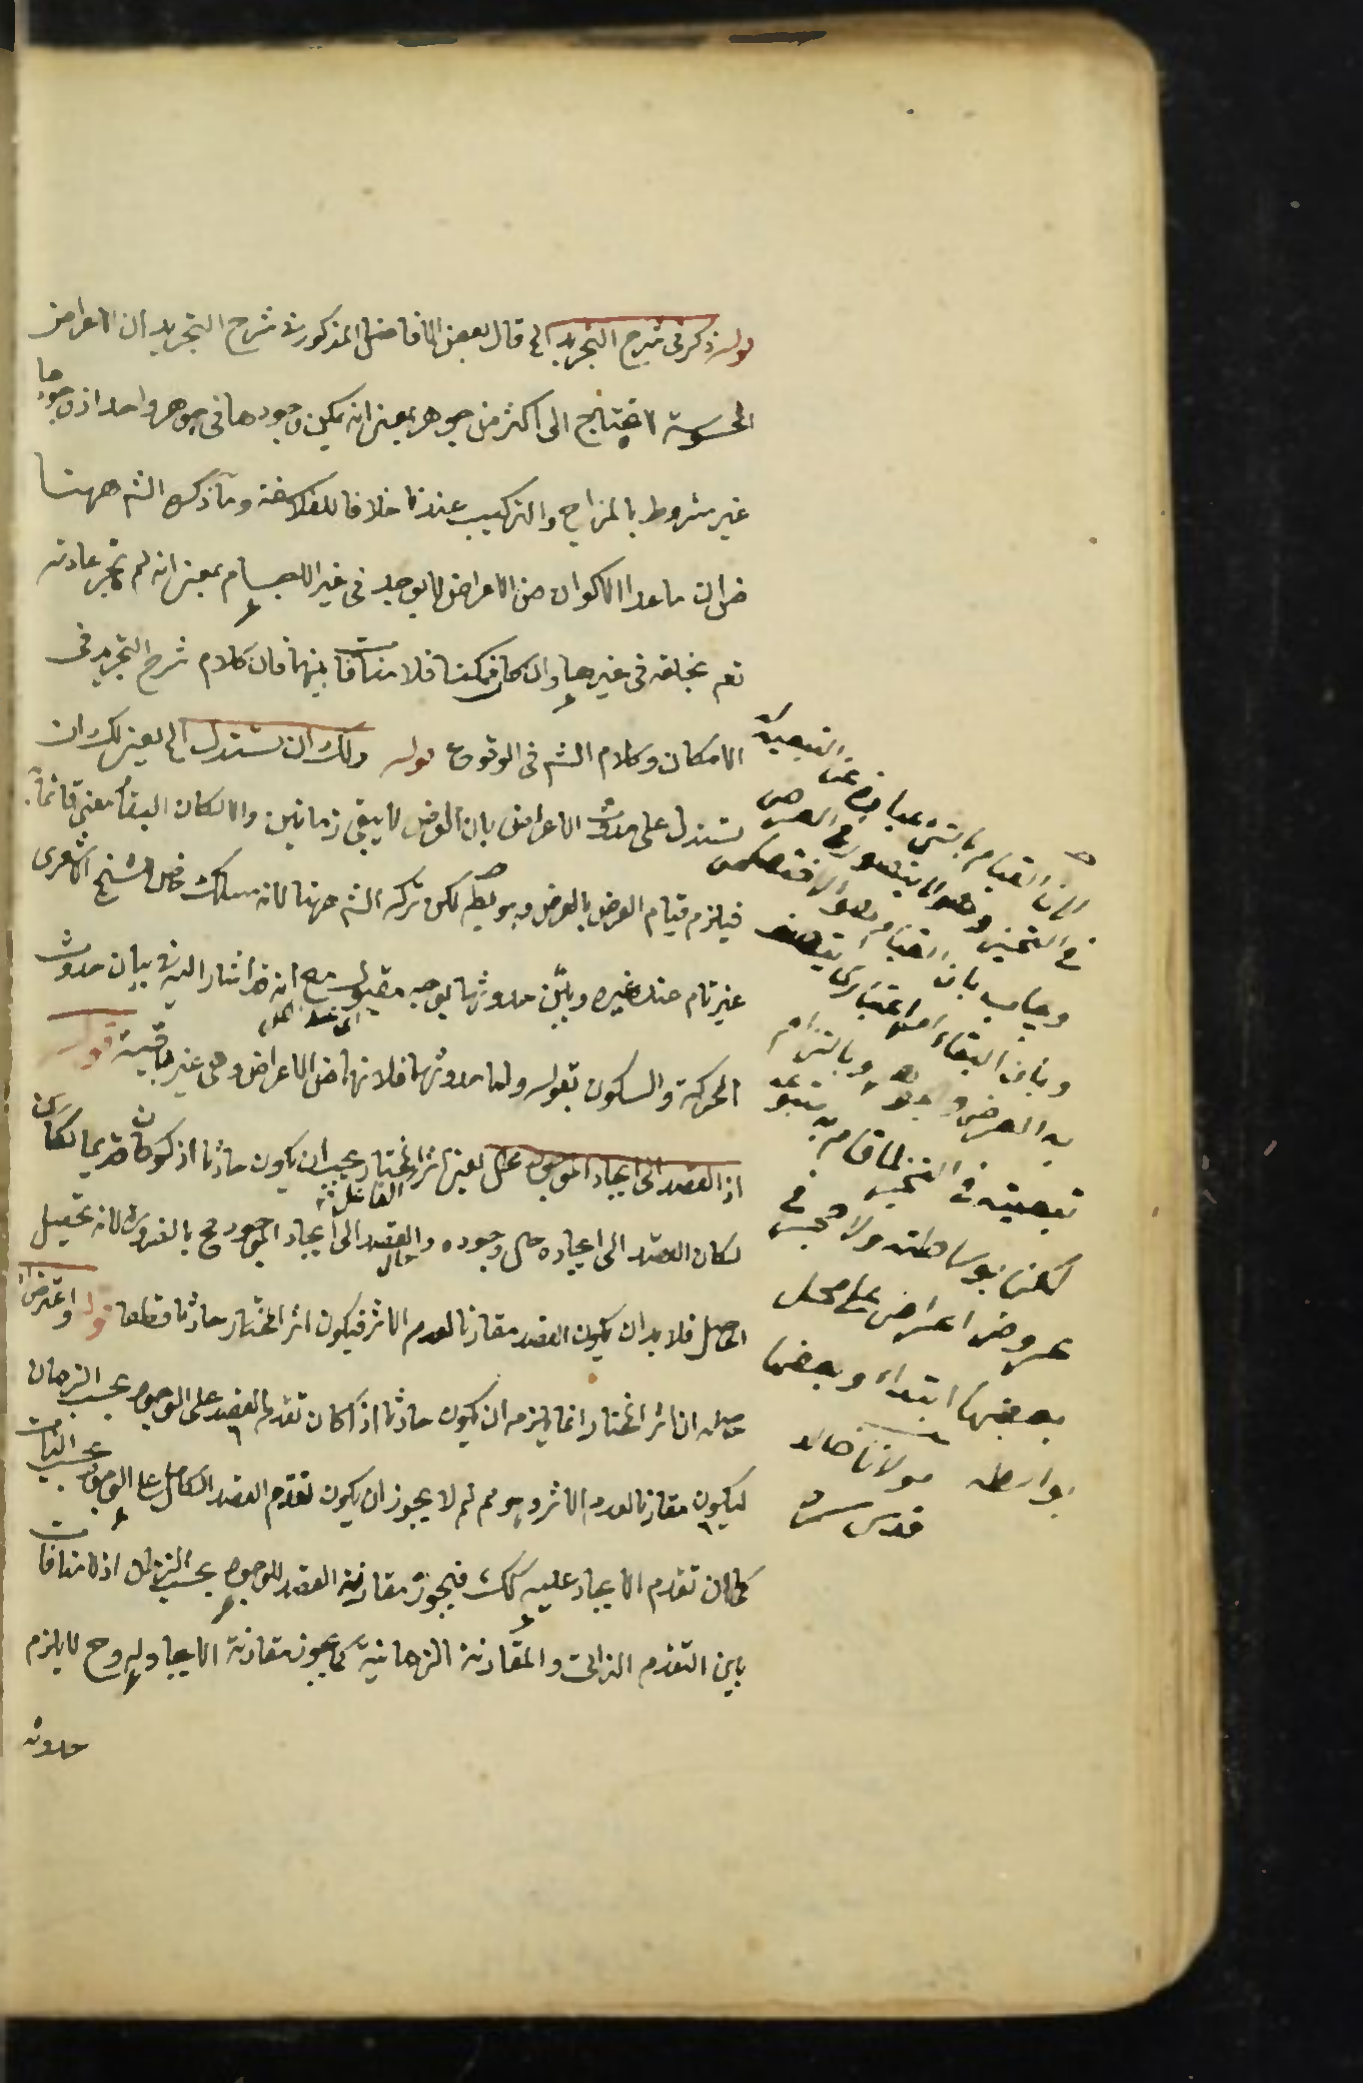 قوله ذكر في شرح التجريد الخ قال بعض الافاضل المذكور في شرح التجريد ان الاعراض
المحسوسة لا تحتاج الى اكثر من جوهر بمعنى انه يمكن وجودها في جوهر واحد اذ وجودها
غير مشروط بالمزاج والتركيب عندنا خلافا للفلاسفة وما ذكره الشه ههنا
من ان ما عدا الاكوان من الاعراض لا يوجد في غير الاجسام بمعنى انه لم تجر عادته
تعم بخلقه في غيرها وان كان ممكنا فلا منافات بينهما فان كلام شرح التجريد في
الامكان وكلام الشه في الوقوع قوله ولك ان تستدل الخ يعني لك ان
تستدل على حدوث الاعراض بان العرض لا يبقى زمانين والا لكان البقاء معنى قائما
فيلزم قيام العرض بالعرض وهو بط لكن تركه الشه ههنا لانه مسلك خاص للشيخ الاشعرى
غير تام عند غيره وبيّن حدوثها بوجه مقبول مع انه قد اشار اليه في بيان حدوث
الحركة والسكون بقوله واما حدوثهما فلانهما من الاعراض وهى غير باقية قوله
اذ القصد الى ايجاد الموجود محال يعنى اثر المختار يجب ان يكون حادثا اذ لو كان قديما لكان
لكان القصد الى ايجاده حال وجوده والقصد الى ايجاد الموجود مح بالضرورة لانه تحصيل
الحاصل فلا بد ان يكون القصد مقارنا لعدم الاثر فيكون اثر المختار حادثا قطعا قوله واعترض
حاصله ان اثر المختار انما يلزم ان يكون حادثا اذا كان تقدم القصد على الوجود بحسب الزمان
ليكون مقارنا لعدم الاثر وهو مم لم لا يجوز ان يكون تقدم القصد الكامل على الوجود بحسب الذات
كما ان تقدم الايجاد عليه كك فيجوز مقارنة القصد للوجود بحسب الزمان اذ لا منافات
بين التقدم الذاتى والمقارنة الزمانية كما يجوز مقارنة الايجاد له وح لا يلزم
حدوثه
لان القيام بالشئ عبارة عن التبعية
في التحيز وهو لا يتصور في العرض
ويجاب بان القيام هو الاختصاص
وبان البقاء امر اعتبارى يتصف
به العرض وبالتزام
تبعيته في التحيز لما قام به
لكن بوساطته ولا
عروض اعراض على محل
بعضها ابتداء وبعضها
بواسطه مولانا خالد
قدس سره